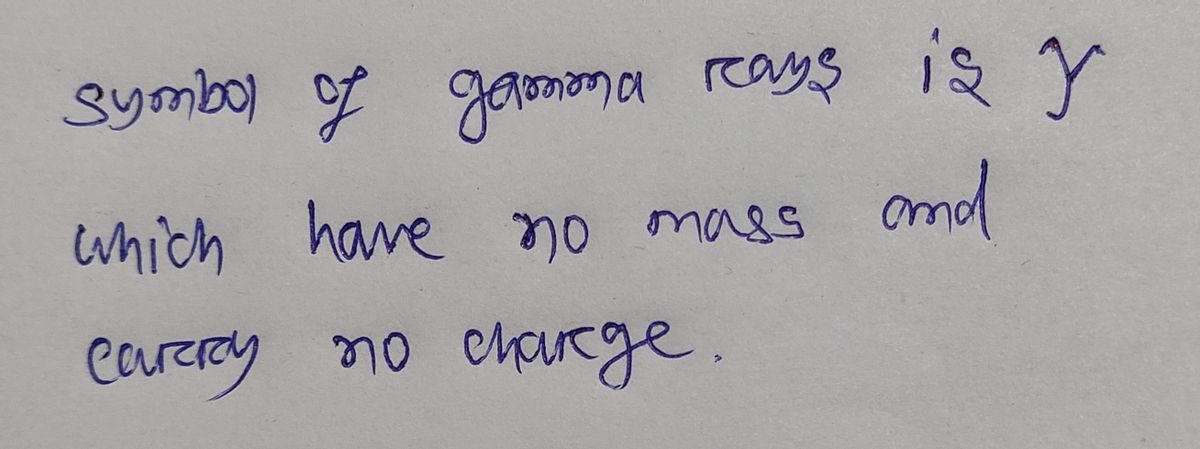 symbol of gamma rays is γ
which have no mass and
carry no charge.